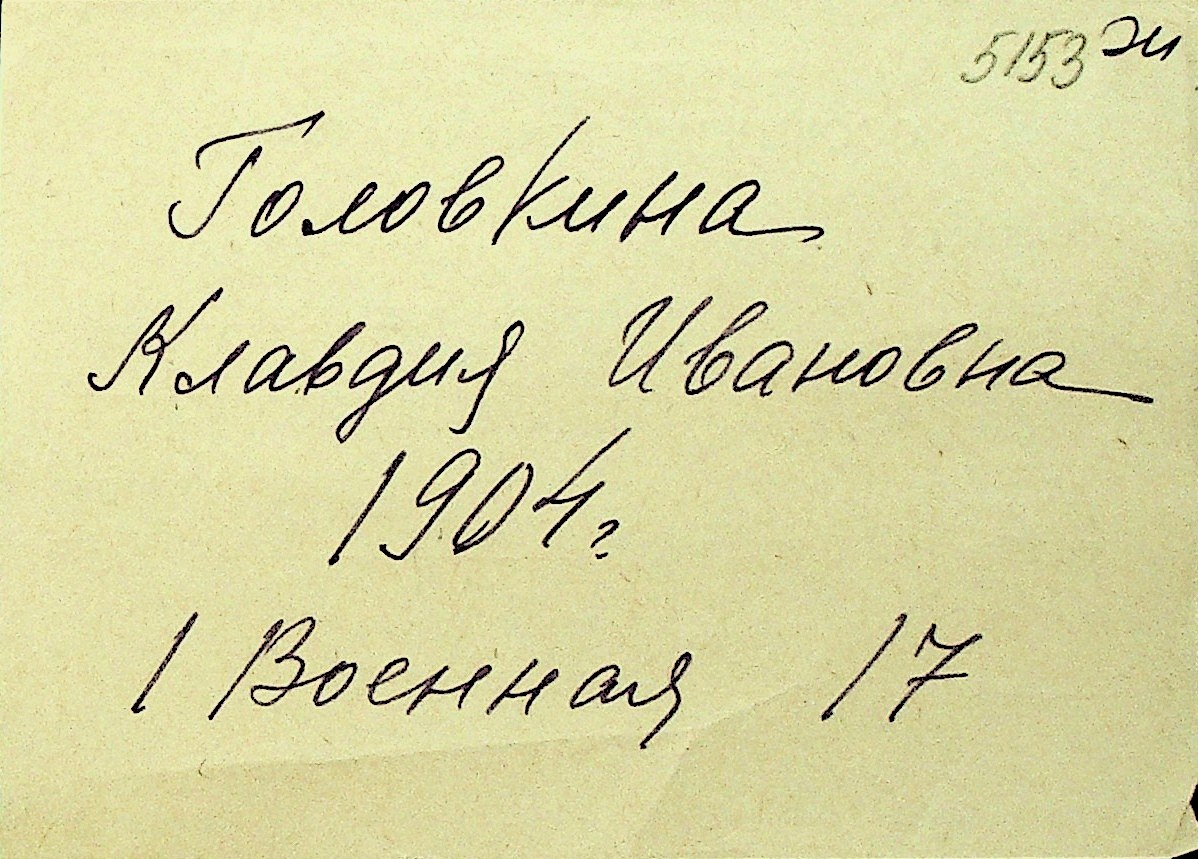 5153 эи
Головкина
Клавдия Ивановна
1904г
1 Военная 17